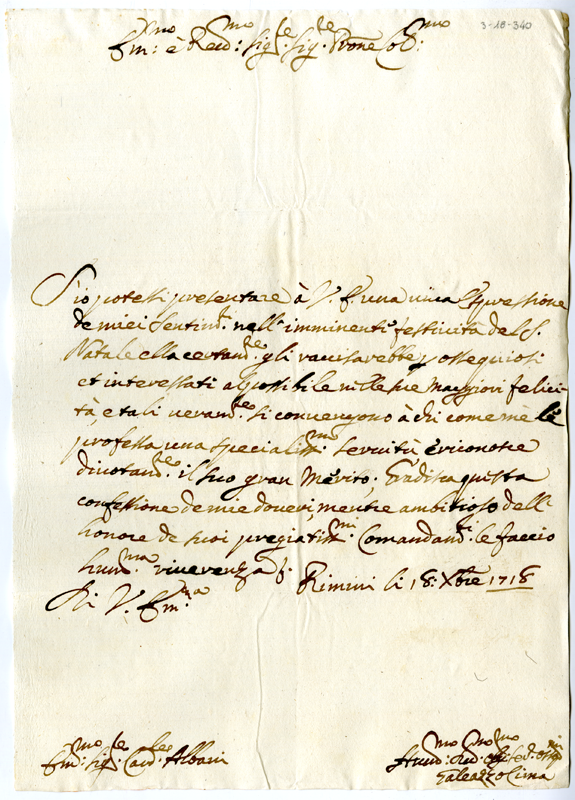 3-18-340
Em:mo e Reu:mo Sig:re Sig:re Pron̄e Col:mo
S'io potessi presentare à V. E. una viua espressione
de miei sentim:ti nell'imminenti festiuità del S.
Natale ella certam:te gli rauisarebbe ossequiosi
et interessati al possibile nelle sue maggiori felici-
tà, e tali ueram:te si conuengono à chi come mè le
professa una specialiss:ma seruitù e riconosce
diuotam:te il suo gran Merito; Gradisca questa
confessione de miei doueri, mentre ambitioso dell'
honore de suoi pregiatiss:mi Comandam:ti le faccio
hum:ma riuerenza. Rimini li 18: Xbre 1718
Di V. Em:za
Em:mo Sig:re Card:le Albani
Hum:mo Deu:mo
Galeazzo Cima